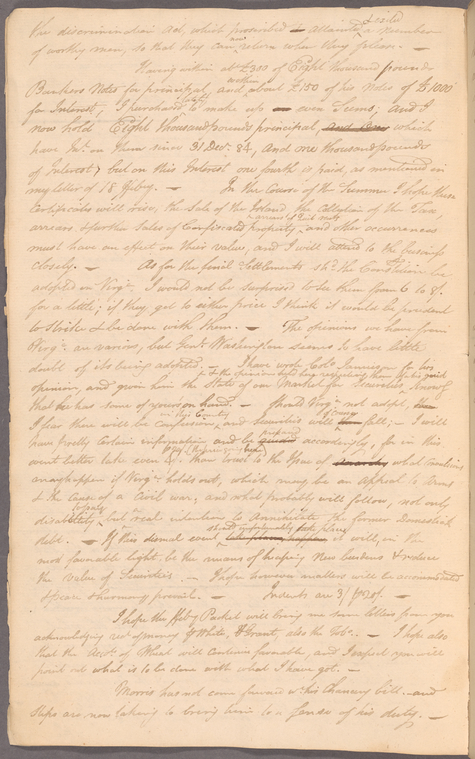 the discrimination Act, which proscribed & attainted & exiled a number
of worthy men, so that they can now return when they please. —
Having within abt £300 of Eight thousand pounds
Bankers Notes for principal, and within about £150 of his Notes of £1000
for Interest, I purchased to make up even Sums, and I
now hold Eight thousand pounds principal, which
have Int. on them since 31 Decr. 84, and one thousand pounds
of Interest, but on this Interest one fourth is paid, as mentioned in
my letter of 18 feby. — In the Course of the Summer I hope these
Certificates will rise, the Sale of the Island, the Collection of the Tax,
arrears of Quit rents
arrears for the Sales of Confiscated property, and other occurrences
must have an effect on their value, and I will attend to the business
closely. — As for the final Settlements shd. the Constitution be
adopted in Virga. I would not be surprised to see them from 6 to 8/.
for a little; if they get to either price I think it would be prudent
to strike & be done with them. — The opinions we have from
Virga. are various, but Genl. Washington seems to have little
doubt of its being adopted. — I have wrote Colo. Jameson for his
opinion, and given him the State of our Market for Securities, knowing
that he has some of yours on hand. — Should Virga. not adopt,
I fear there will be confusion in this Country, and Securities will fall; — I will
have pretty Certain information and be prepared accordingly, for in this
event better take even than trust to the Issue of what Conventions
may happen if Virga. holds out, which may be an appeal to Arms
& the Curse of a Civil war, and what probably will follow, not only
disability, but real intention to Annihilate the former Domestick
debt. — If this dismal event should unfortunately take place it will, in the
most favorable light, be the means of heaping New burdens & reduce
the value of Securities. — I hope however matters will be accommodated
& peace & harmony prevail. — Indents are 3/
I hope the feby Packet will bring me some letters from you
acknowledging rect. of money & White, & Grant, also the Tobo. — I hope also
that the Acct. of Wheat will Continue favorable, and I expect you will
point out what is to be done with what I have got. —
Morris has not come forward with his Chancery bill. — and
steps are now taking to bring him to a sense of his duty. —